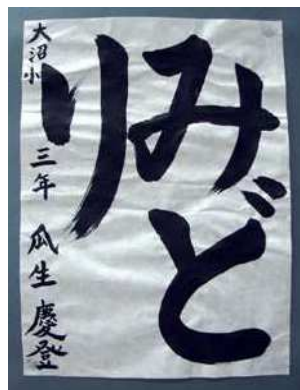 みど
り
大沼小 三年 瓜生慶登